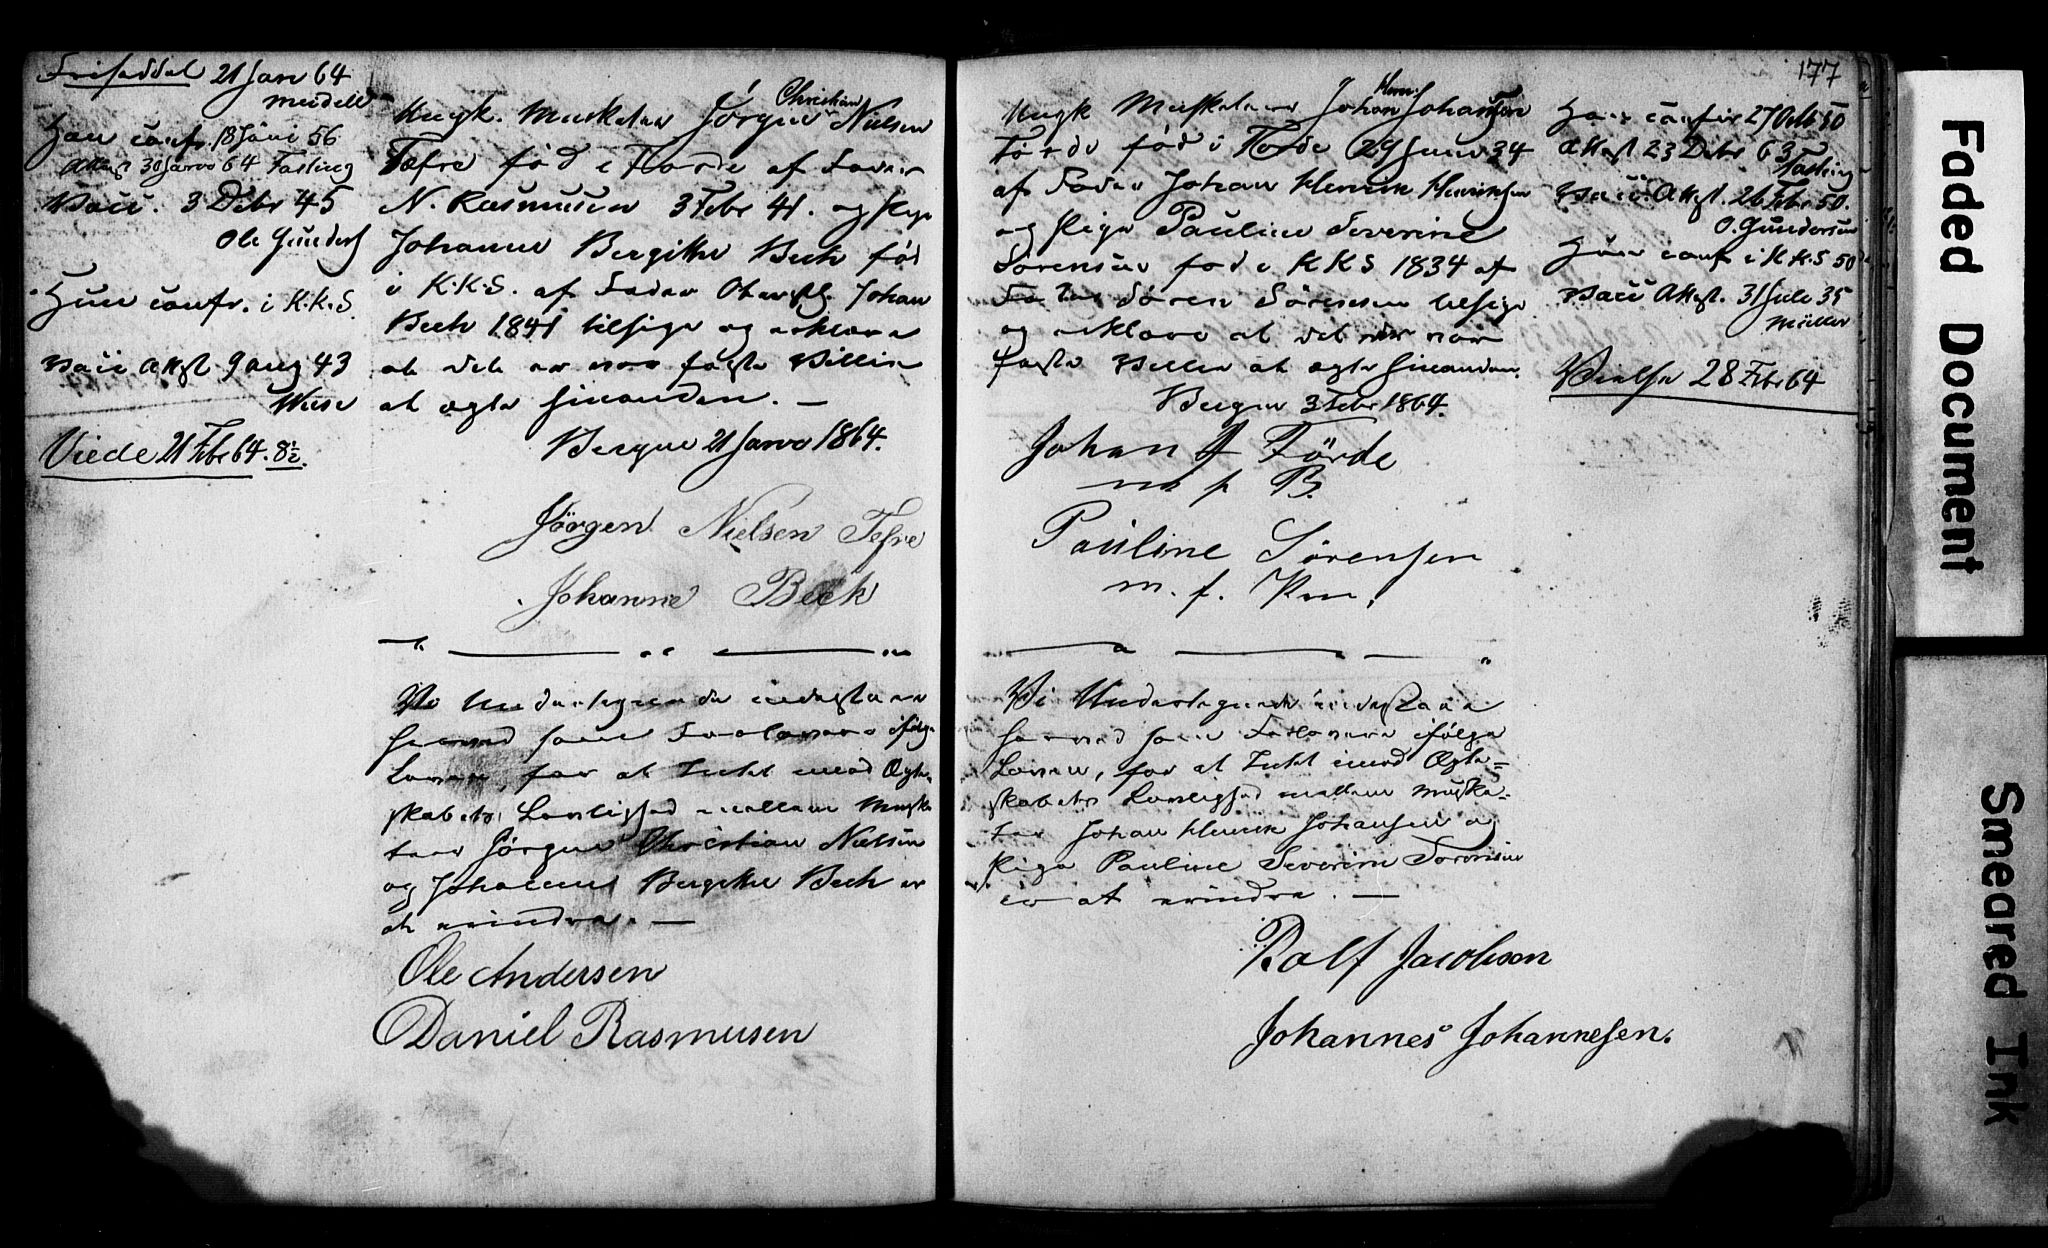 Friseddel 21 Jan 64
Mendell
Han conf. 18 Juni 56
Attest 30 Janv 64 Fasting
Vacc. 3 Debr 45
Ole Gunders
Hun confr. i K.K.S.
Vacc Attst 9 aug 43
Wiese
Viede 21 Febr 64. 8½.
Ungk. Musketeer Jörgen Christian Nielsen
Tefre föd i Förde af Fader
N. Rasmusen 3 Febr 41. og Pige
Johanne Bergitte Beck föd
i K.K.S. af Fader Johan
Beck 1841 tilsige og erklære
at det er vor faste Villie
at ægte hinanden. —
Bergen 21 Janvr 1864.
Jörgen Nielsen Tefre
Johanne Beck
Vi Undertegnede indestaae
herved som Forlovere ifölge
Loven, for at Intet imod Ægte-
skabets Lovlighed mellem Muske
teer Jörgen Christian Nielsen
og Johanne Bergitte Beck er
at erindre. —
Ole Andersen
Daniel Rasmusen
177
Ungk Musketeer Johan Henr. Johansen
Förde föd i Förde 29 Juni 34
af Fader Johan Henrik Henriksen
og Pige Pauline Severine
Sörensen föd i K K S 1834 af
Fader Sören Sörensen tilsige
og erklære at det er vor
faste Villie at ægte hinanden.
Bergen 3 Febr 1864.
Johan J Förde
m p B.
Pauline Sörensen
m. p. Pen.
Vi Undertegnede indestaae
herved som Forlovere ifölge
Loven, for at Intet imod Ægte-
skabets Lovlighed mellem Muske-
teer Johan Henrik Johansen og
Pige Pauline Severine Sorensen
er at erindre. —
Rolf Jacobsen
Johannes Johannesen.
Han confir 27 Octb 50
Attest 23 Debr 63
Fasting
Vacc. Attst. 26 Febr 50.
O. Gundersen
Hun conf i K K S 50
Vacc Attst. 31 Jule 35
Müller
Vielse 28 Febr 64
Faded Document
Smeared Ink